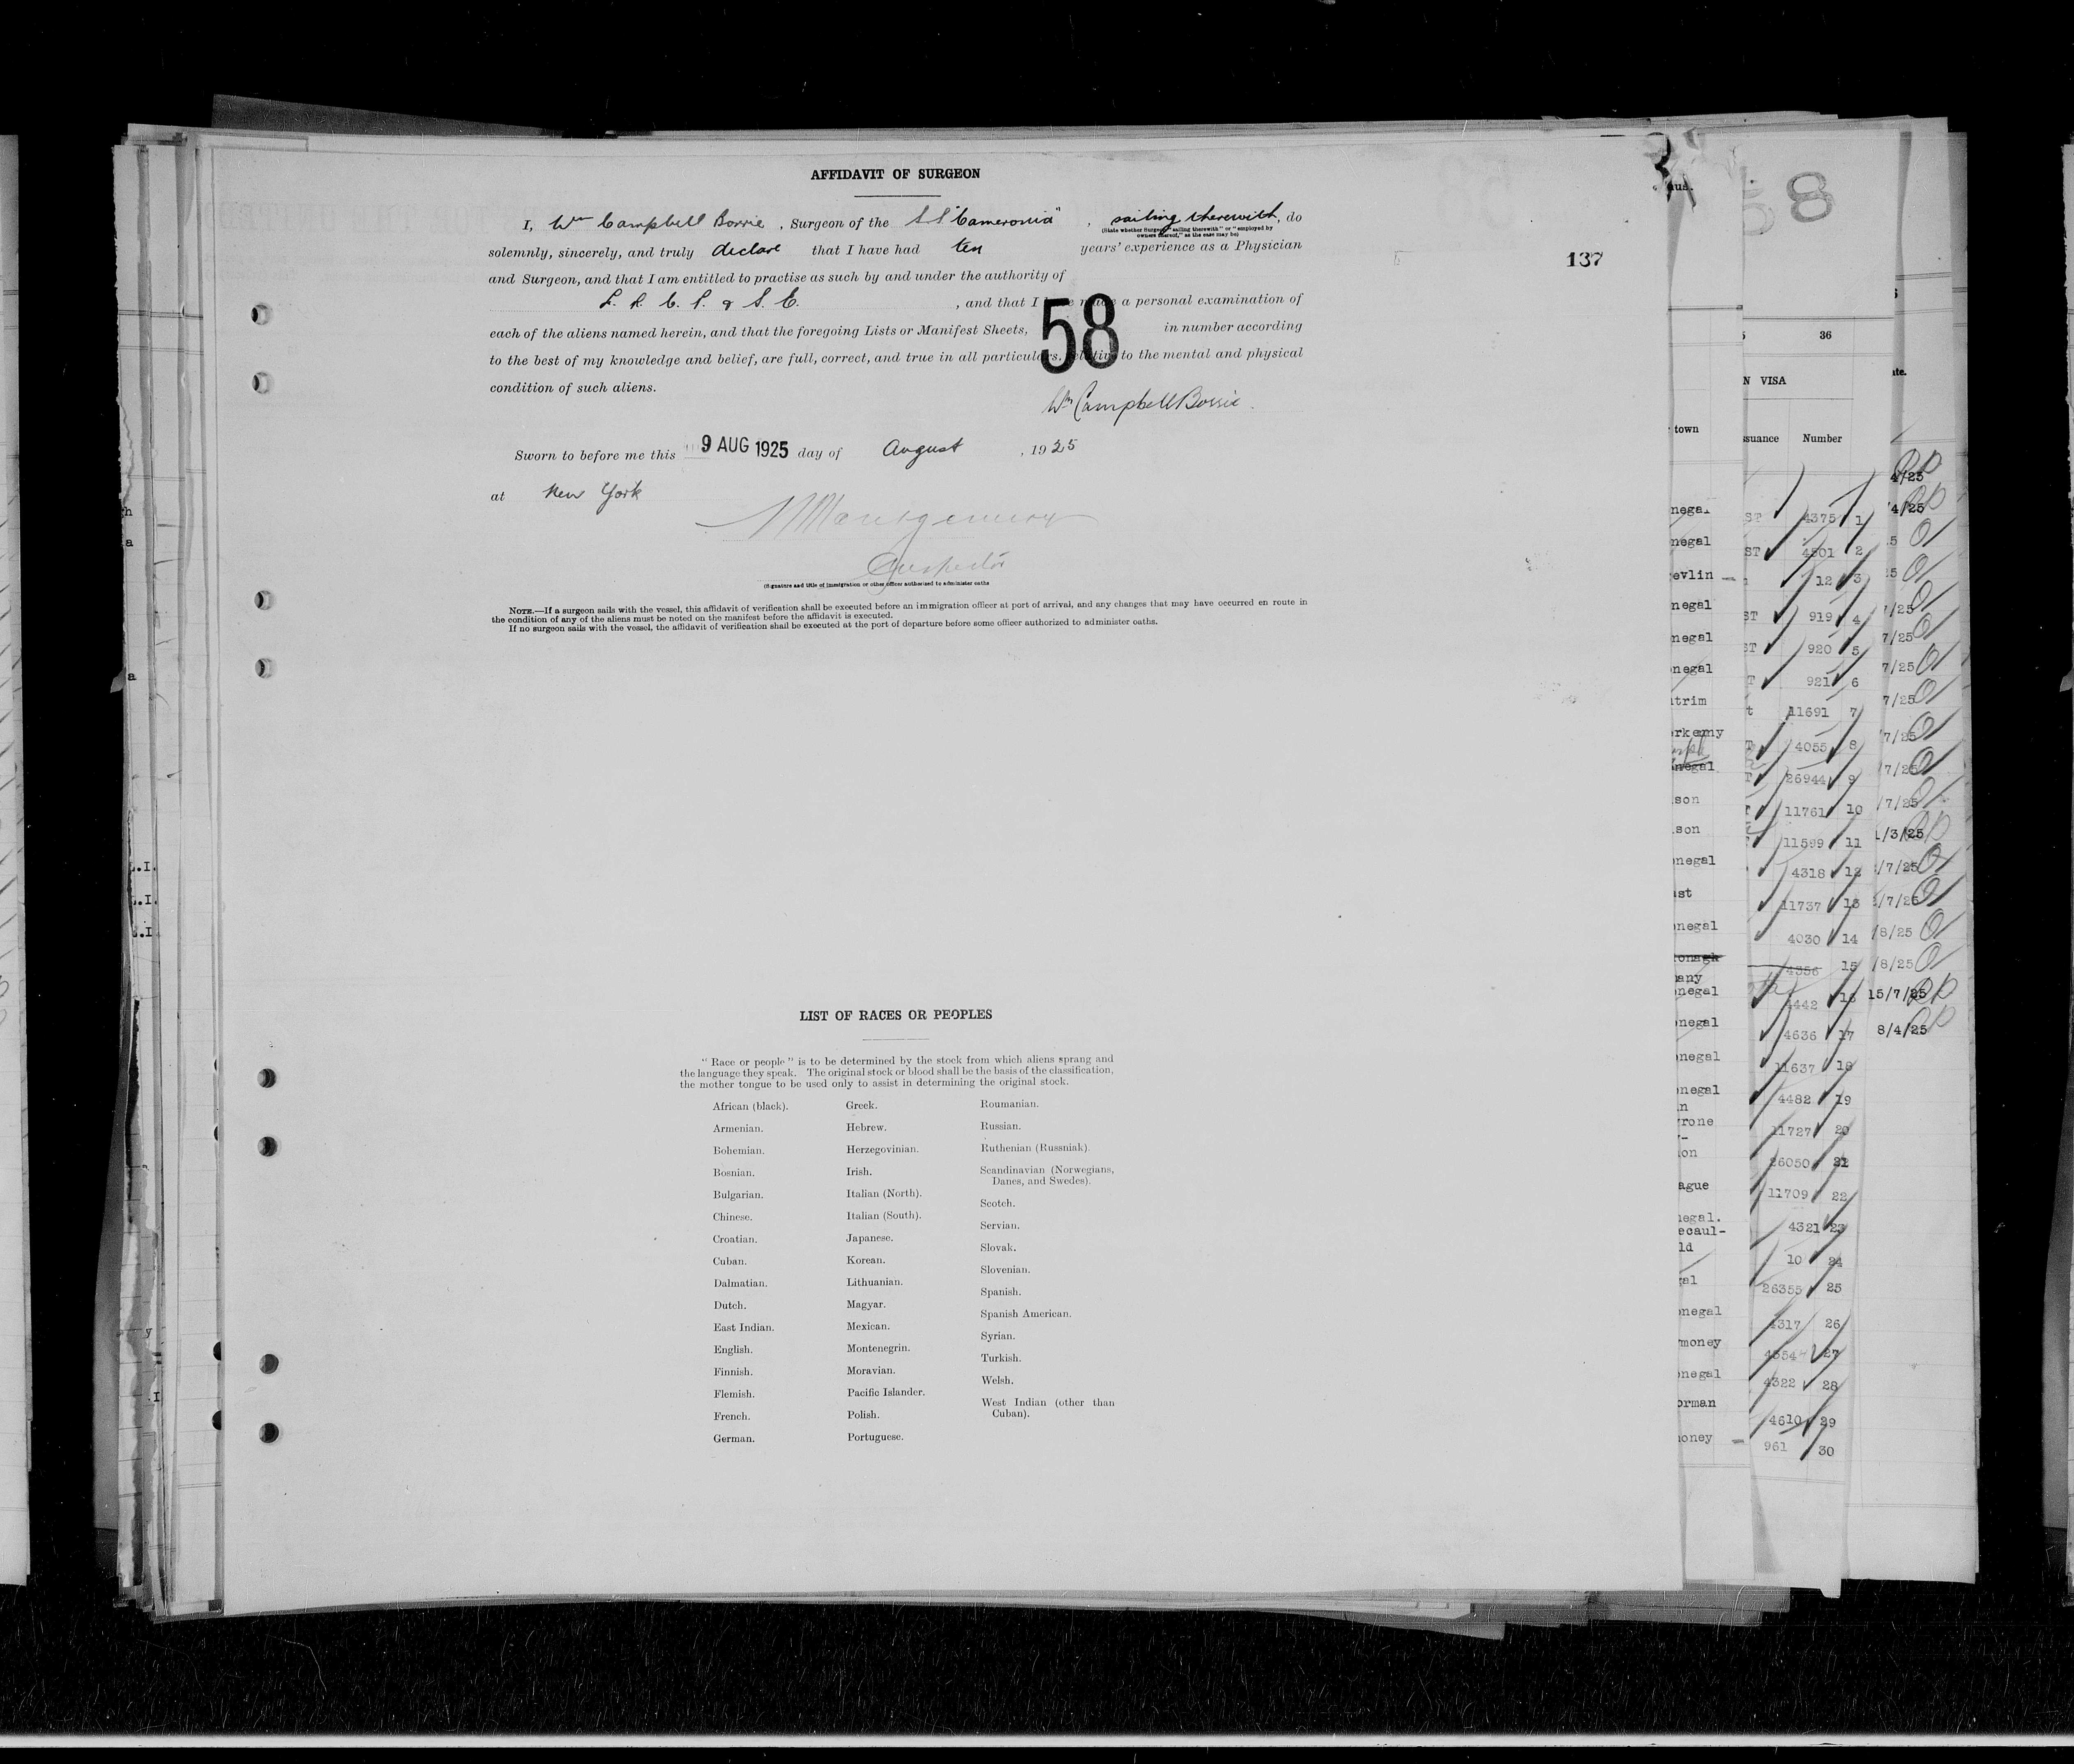 AFFIDAVIT OF SURGEON
I, Wm Campbell Borrie, Surgeon of the S.S. "Cameronia", sailing therewith, do
(State whether Surgeon "sailing therewith" or "employed by
owners thereof," as the case may be)
solemnly, sincerely, and truly declare that I have had ten years' experience as a Physician
137
and Surgeon, and that I am entitled to practise as such by and under the authority of
L. R. C. P. & S. E. , and that I have made a personal examination of
each of the aliens named herein, and that the foregoing Lists or Manifest Sheets, 58 in number according
to the best of my knowledge and belief, are full, correct, and true in all particulars, relative to the mental and physical
condition of such aliens.
Wm Campbell Borrie.
Sworn to before me this 9 AUG 1925 day of August , 1925
at New York
Montgomery
Inspector
(Signature and title of immigration or other officer authorized to administer oaths
NOTE.—If a surgeon sails with the vessel, this affidavit of verification shall be executed before an immigration officer at port of arrival, and any changes that may have occurred en route in
the condition of any of the aliens must be noted on the manifest before the affidavit is executed.
If no surgeon sails with the vessel, the affidavit of verification shall be executed at the port of departure before some officer authorized to administer oaths.
LIST OF RACES OR PEOPLES
"Race or people" is to be determined by the stock from which aliens sprang and
the language they speak. The original stock or blood shall be the basis of the classification,
the mother tongue to be used only to assist in determining the original stock.
African (black).
Armenian.
Bohemian.
Bosnian.
Bulgarian.
Chinese.
Croatian.
Cuban.
Dalmatian.
Dutch.
East Indian.
English.
Finnish.
Flemish.
French.
German.
Greek.
Hebrew.
Herzegovinian.
Irish.
Italian (North).
Italian (South).
Japanese.
Korean.
Lithuanian.
Magyar.
Mexican.
Montenegrin.
Moravian.
Pacific Islander.
Polish.
Portuguese.
Roumanian.
Russian.
Ruthenian (Russniak).
Scandinavian (Norwegians,
Danes, and Swedes).
Scotch.
Servian.
Slovak.
Slovenian.
Spanish.
Spanish American.
Syrian.
Turkish.
Welsh.
West Indian (other than
Cuban).
58
36
N VISA
town
ssuance Number
4375 1
4501 2
12 3
919 4
920 5
921 6
11691 7
4055 8
26944 9
11761 10
11599 11
4318 12
11737 13
4030 14
4356 15
4442 16
4636 17
11637 18
4482 19
11727 20
26050 21
11709 22
4321 23
10 24
26355 25
4317 26
4554 27
4322 28
4610 29
961 30